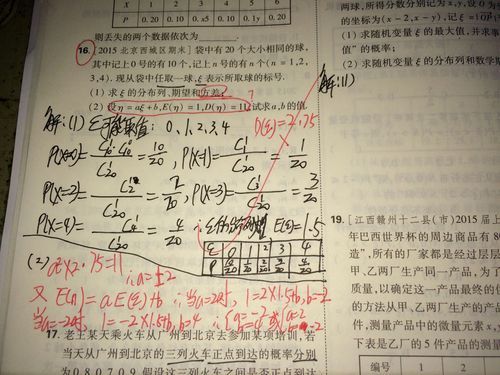 X 1 2 3 4 5 6
P 0.20 0.10 0.x5 0.10 0.1y 0.20
则丢失的两个数据依次为
16.[2015 北京西城区期末]袋中有20个大小相同的球,
其中记上0号的有10个,记上n号的有n个(n=1,2,
3,4).现从袋中任取一球,ξ表示所取球的标号.
(1)求ξ的分布列、期望和方差;
(2)设η=aξ+b,E(η)=1,D(η)=11,试求a,b的值.
D(ξ)=2.75
解:(1) ξ可能取值: 0,1,2,3,4
=10/20, P(X=1)=C₁¹/C₂₀¹=1/20
P(X=2)=C₂¹/C₂₀¹=2/20, P(X=3)=C₃¹/C₂₀¹=3/20
P(X=4)=C₄¹/C₂₀¹=4/20
E(ξ)=1.5
ξ 0 1 2 3 4
P 10/20 1/20 2/20 3/20 4/20
(2) a²×2.75=11
∴a=±2
又 E(η)=aE(ξ)+b ∴当a=2时, 1=2×1.5+b, b=-2
当a=-2时, 1=-2×1.5+b, b=4
17.老王某天乘火车从广州到北京去参加某项培训,若
当天从广州到北京的三列火车正点到达的概率分别
为0.8,0.7,0.9,假设这三列火车之间是否正点到达
两球,所得分数分别记为x,y,设O为
的坐标为(x-2,x-y),记ξ=
(1)求随机变量ξ的最大值,并求事
值”的概率;
(2)求随机变量ξ的分布列和数学期
解:(1)
19.[江西赣州十二县(市)2015届上
年巴西世界杯的周边商品有80
造”,所有的厂家都是经过层层
甲、乙两厂生产同一产品,为了
质量,以确定这一产品最终的
的方法从甲、乙两厂生产的产品
件,测量产品中的微量元素x,y
下表是乙厂的5件产品的测量
编号 1 2